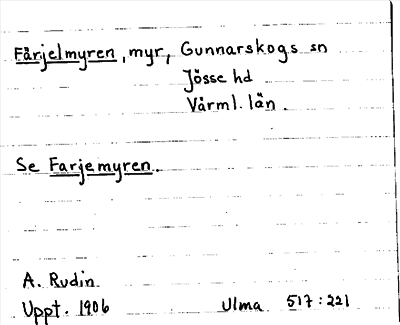 Fårjelmyren, myr, Gunnarskogs sn
Jösse hd
Värml. län.
Se Farjemyren.
A. Rudin
Uppt. 1906 Ulma 517:221